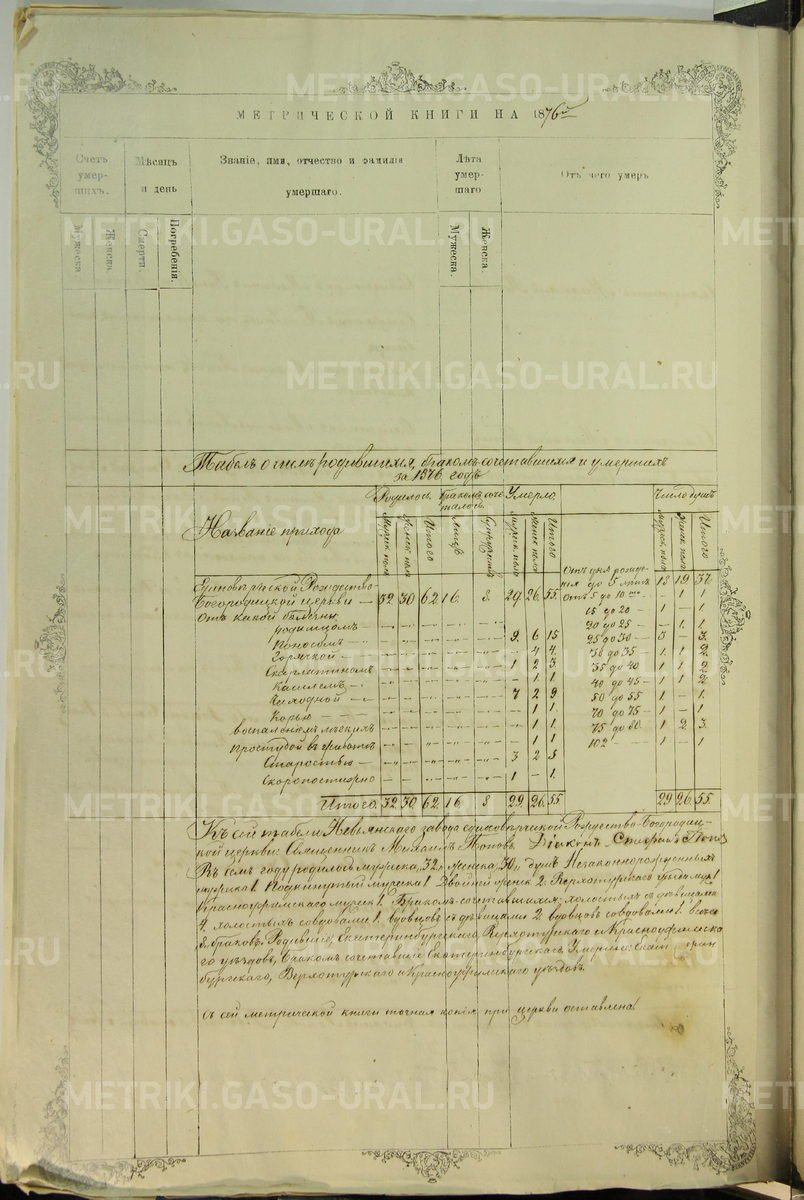 МЕТРИЧЕСКОЙ КНИГИ НА 1876й
Счетъ умершихъ.
Мѣсяцъ и день
Званіе, имя, отчество и фамилія умершаго.
Лѣта умершаго
Отъ чего умеръ
Мужеска.
Женска.
Смерти.
Погребенія.
Мужеска.
Женска.
Табель о числѣ родившихся, бракомъ сочетавшихся и умершихъ
за 1876 годъ
Названіе прихода
Родилось
Бракомъ сочеталось
Умерло
Число душъ
Мужск. пола
Женск. пола
Итого
Лицъ
Супружествъ
Мужск. пола
Женск. пола
Итого
Мужск. пола
Женск. пола
Итого
Единовѣрческой Рождество-
Богородицкой церкви — 32 30 62 16 8 29 26 55
Отъ какой болѣзни
Родимцомъ
Поносомъ 9 6 15
Горячкой 4 4
Скарлатиномъ 1 2 3
Кашлемъ 1 1
Чахоткой 7 2 9
Корью 1 1
воспаленіемъ легкихъ 1 1
Простудой в животѣ 1 1
Старостью 3 2 5
Скоропостижно 1 - 1
Итого 32 30 62 16 8 29 26 55
Отъ дня рожденія до 5 лѣтъ 18 19 37
Отъ 5 до 10 — 1 1
15 до 20 — 1 — 1
20 до 25 — 1 1
25 до 30 — 3 — 3
30 до 35 — 1 1 2
35 до 40 1 1 2
40 до 45 — 1 1 2
50 до 55 1 — 1
70 до 75 — 1 — 1
75 до 80 1 2 3
102 — 1
29 26 55
Къ сей табели Невьянскаго завода единовѣрческой Рождество-Богородиц-
кой церкви: Священникъ Михаилъ Поповъ. Діаконъ Попов
Въ семъ году родилось мужеска 32, женска 30, душъ Незаконнорожденныхъ
мужска 1 Подкинутый мужска 1 Двойней женск 2 Верхотурскаго уѣзда муж 1
Красноуфимскаго мужск 1. Бракомъ сочетавшихся, холостыхъ съ дѣвицами
4, холостыхъ со вдовами 1. вдовцовъ съ дѣвицами 2 вдовцовъ со вдовами 1. всего
8 браковъ. Родившіе, Екатеринбургскаго, Верхотурскаго и Красноуфимска
го уѣздовъ, Бракомъ сочетавшіе Екатеринбургскаго. Умершіе
бургскаго, Верхотурскаго и Красноуфимскаго уѣздовъ.
съ сей метрической книги точная копія при церкви оставлена
METRIKI.GASO-URAL.RU